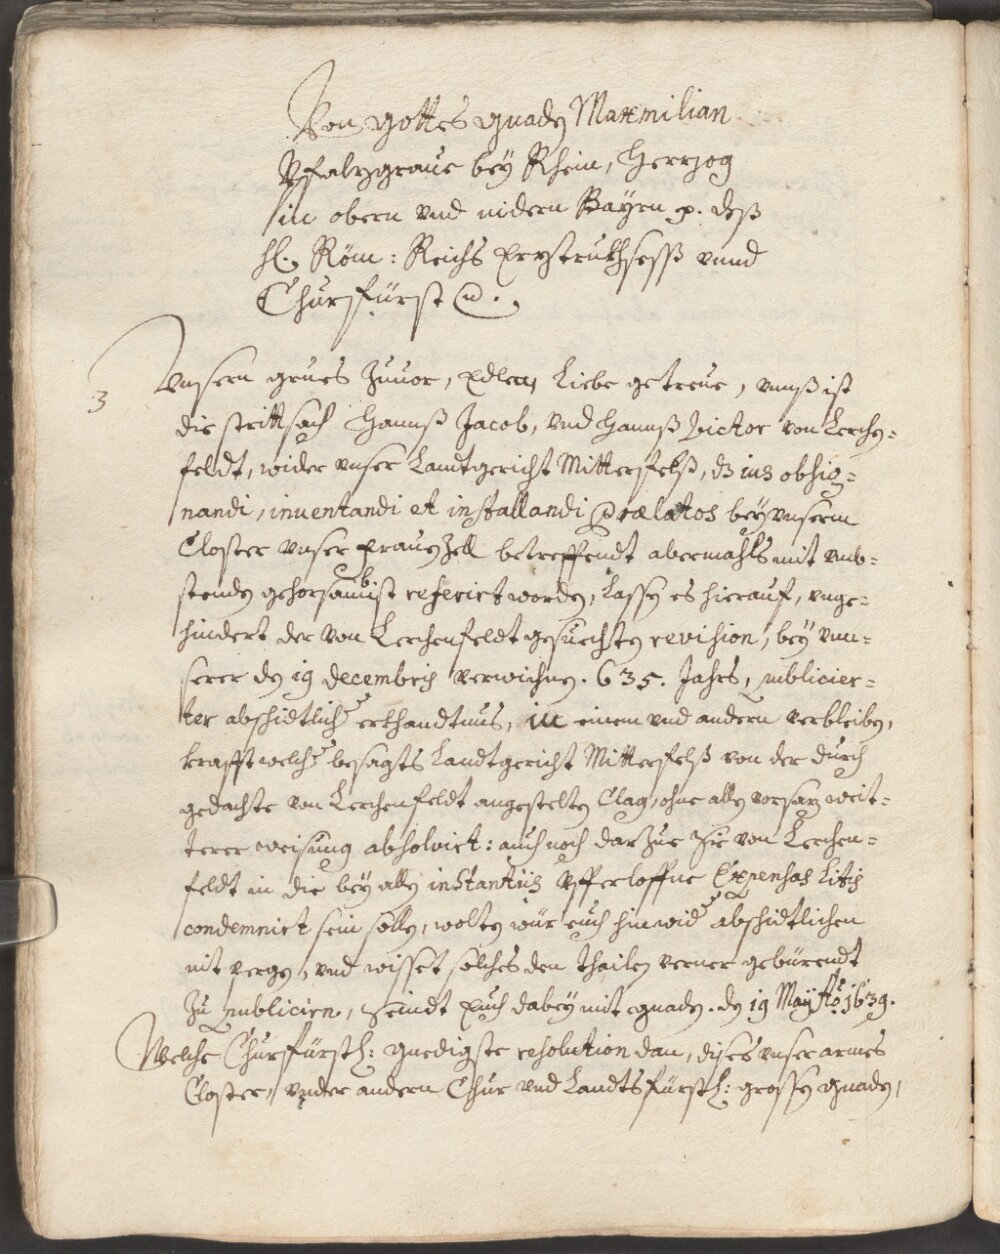 Von Gottes gnaden Maxmilian
Pfalzgraue bey Rhein, Herzog
in obern vnd nidern Bayrn p. deß
hl. Röm: Reichs Erztruchseß vnnd
Churfürst
3
Vnsern grues zuuor, Edle, Liebe getreue, vnnß ist
die strittsach Hannß Jacob, vnd Hannß Victor von Lerchen-
feldt, wider vnser Landtgericht Mitterfelß, dz ius obsig-
nandi, inuentandi et installandi Prælatos bey vnserm
Closter vnser Frauenzell betreffendt abermahls mit vmb-
stenden gehorsambist referirt worden, Lassen es hierauf, vnge-
hindert der von Lerchenfeldt gesuechten revision, bey vnn-
serer den 19 decembris verwichnen .635. Jahrs, publicier-
ter abschidtlicher erkhandtnus, in einem vnd andern verbleiben,
krafft welcher besagts Landtgericht Mitterfelß von der durch
gedachte von Lerchenfeldt angestelten Clag, ohne allen vorsaz weit-
terer weisung absolvirt: auch noch darzue Sie von Lerchen-
feldt in die bey allen instantiis Expensas Litis
condemnirt sein sollen, wolten wür euch hinwider abschidtlichen
nit pergen, vnd wisset solches den thailen verner gebürendt
zu publicirn, Seindt Euch dabey mit gnaden. den 19 May Ao. 1639.
Welche Churfürstl: gnedigste resolution dan, dises vnser armes
Closter, vnder andern Chur vnd Landtsfürstl: grossen gnaden,